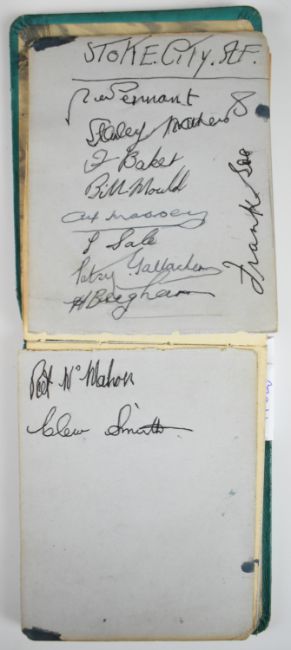 STOKE. CITY. F.
Pennant
Stanley Matthews
F Baker
Bill Mould
Alf Massey
T Sale
Patsy Gallacher
H Brigham
Frank Soo
Pat McMahon
Clem Smith